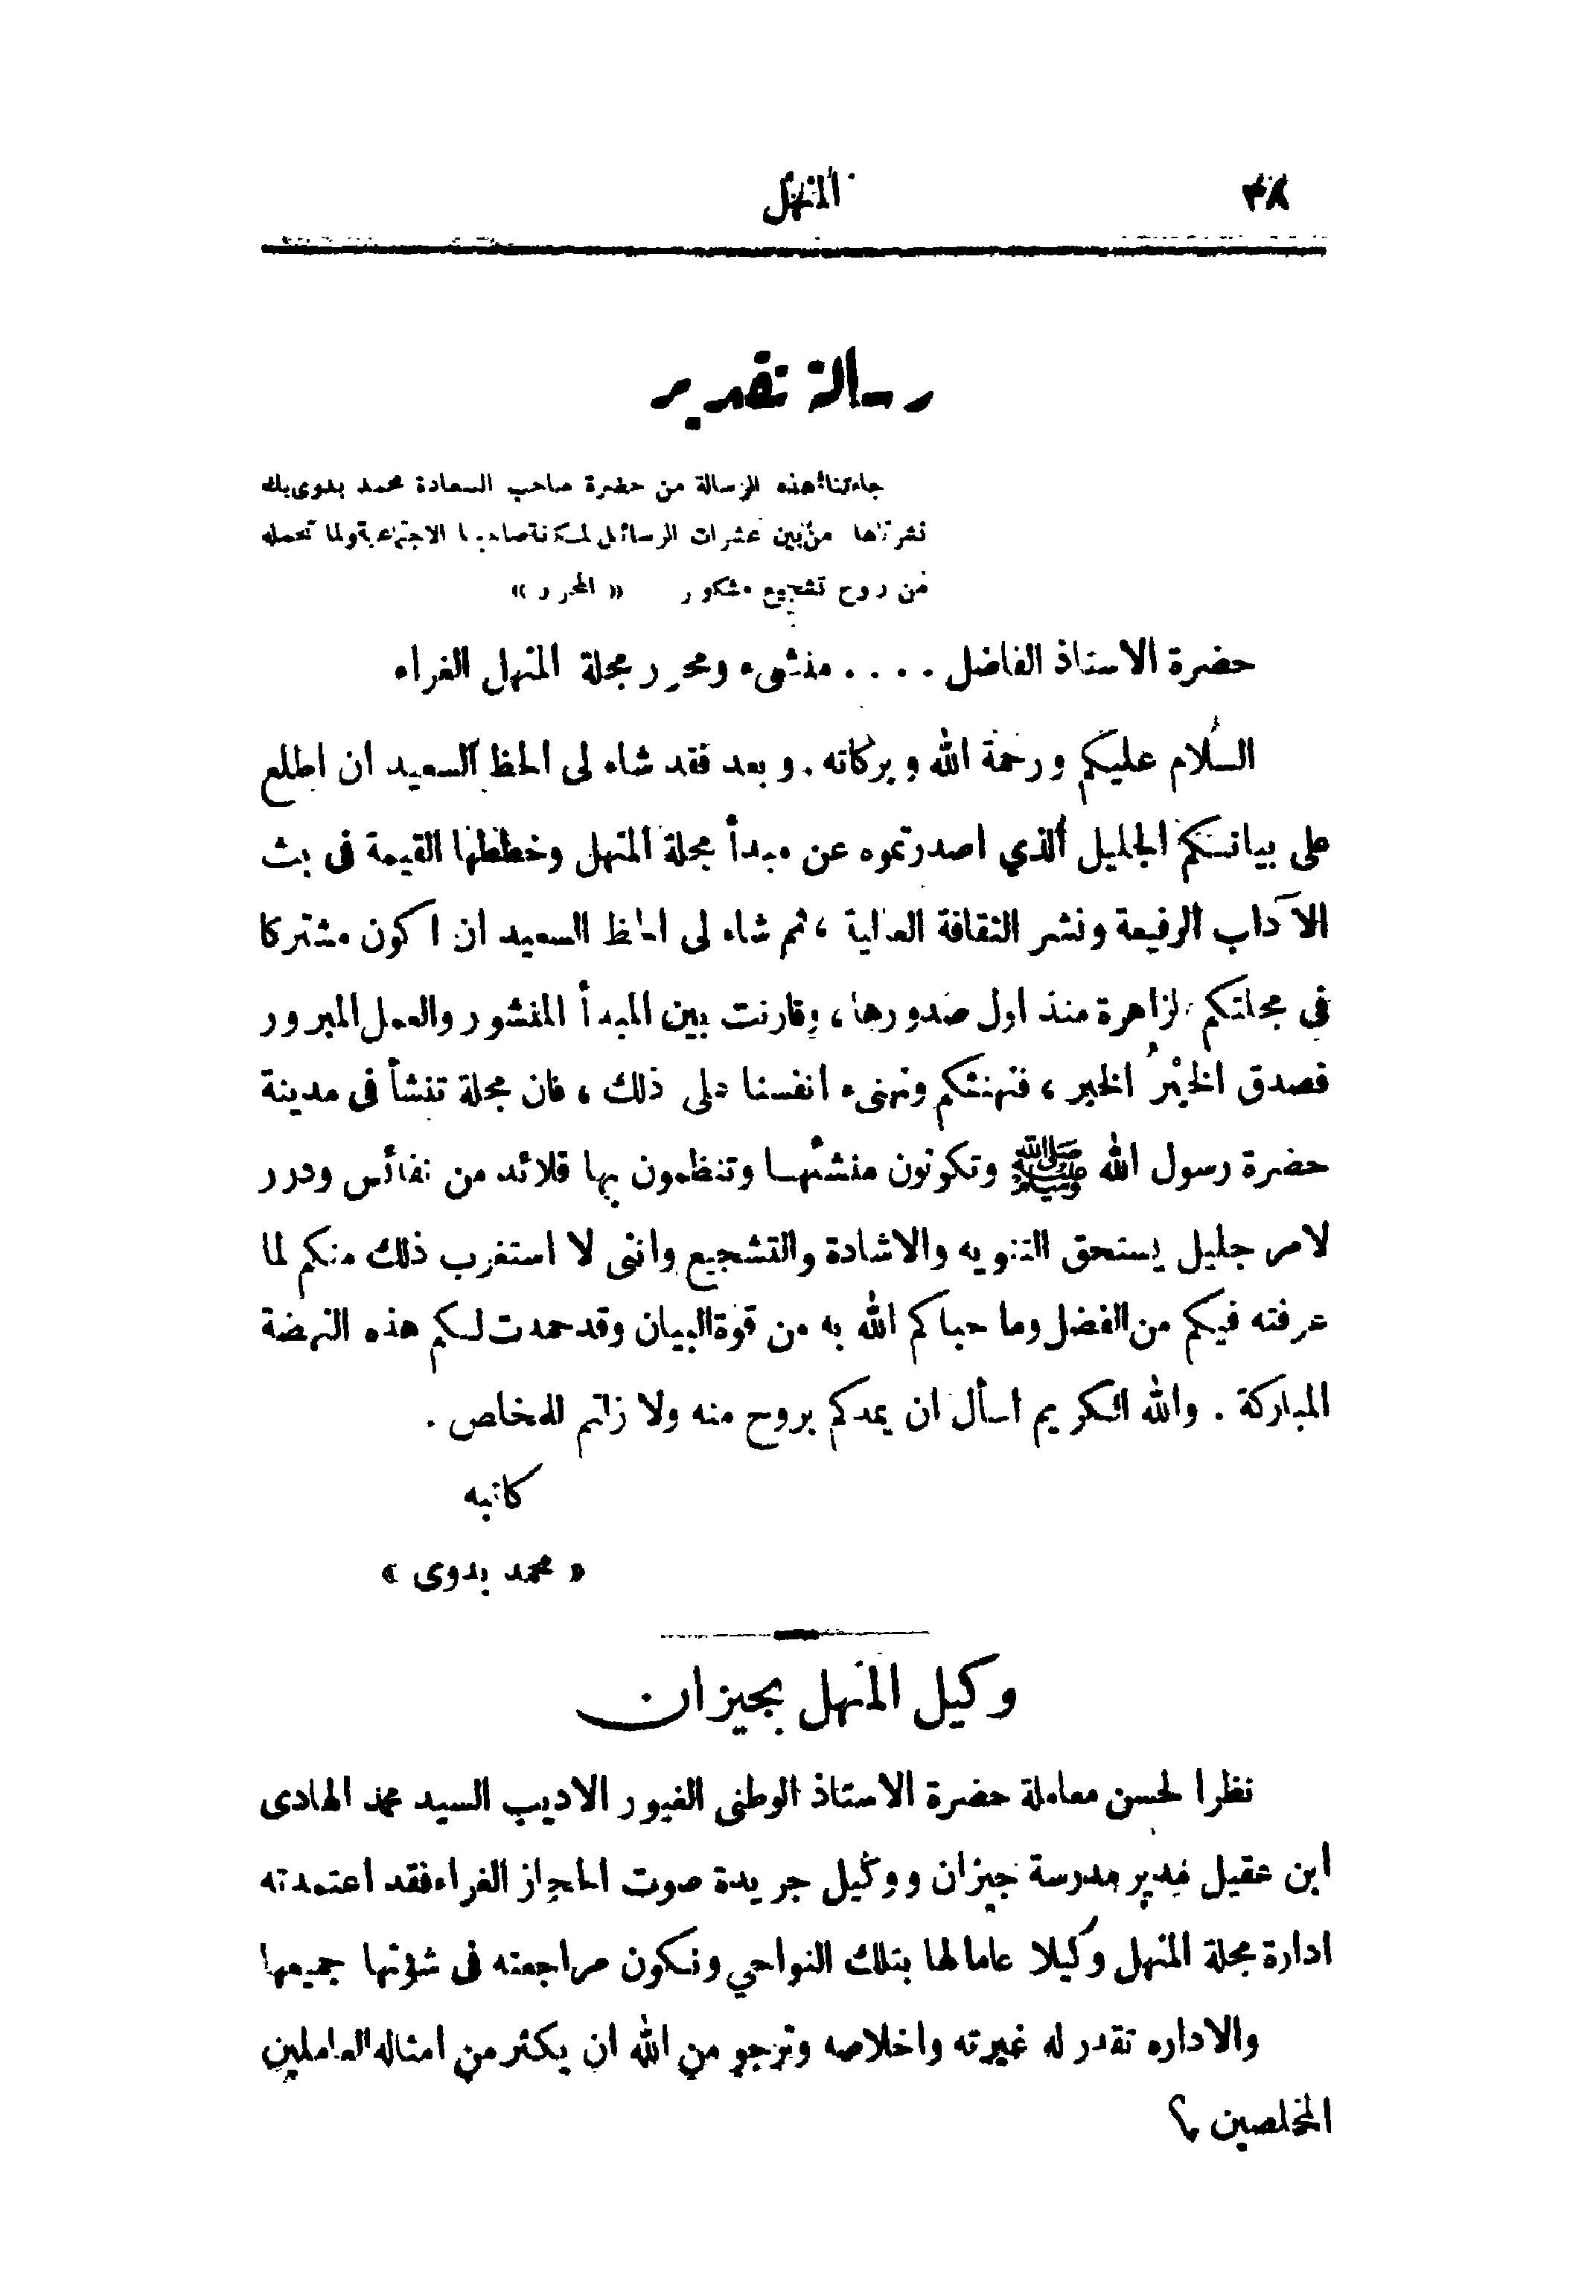 ٣٨ المنهل
رسالة تقدير
جاءتنا هذه الرسالة من حضرة صاحب السعادة محمد بدوى بك
نشرناها من بين عشرات الرسائل لمكانة صاحبها الاجتماعية ولما تحمله
من روح تشجيع مشكور « المحرر »
حضرة الاستاذ الفاضل . . . . منشىء ومحرر مجلة المنهل الغراء
السلام عليكم ورحمة الله وبركاته . وبعد فقد شاء لى الحظ السعيد ان اطلع
على بيانكم الجليل الذي اصدرتموه عن مبدأ مجلة المنهل وخططها القيمة فى بث
الآداب الرفيعة ونشر الثقافة العالية ، ثم شاء لى الحظ السعيد ان اكون مشتركا
في مجلتكم الزاهرة منذ اول صدورها ، وقارنت بين المبدأ المنشور والعمل المبرور
فصدق الخُبْرُ الخبر ، فنهنئكم ونهنىء انفسنا على ذلك ، فان مجلة تنشأ فى مدينة
حضرة رسول الله ﷺ وتكونون منشئها وتنظمون بها قلائد من نفائس ودرر
لامر جليل يستحق التنويه والاشادة والتشجيع واننى لا استغرب ذلك منكم لما
عرفته فيكم من الفضل وما حباكم الله به من قوة البيان وقد حمدت لكم هذه النهضة
المباركة . والله الكريم اسأل ان يمدكم بروح منه ولا زلتم للمخلص .
كاتبه
« محمد بدوى »
وكيل المنهل بجيزان
نظرا لحسن معاملة حضرة الاستاذ الوطنى الغيور الاديب السيد محمد الهادى
ابن عقيل مدير مدرسة جيزان ووكيل جريدة صوت الحجاز الغراء فقد اعتمدته
ادارة مجلة المنهل وكيلا عاما لها بتلك النواحي وتكون مراجعته فى شؤنها جميعها
والاداره تقدر له غيرته واخلاصه وترجو من الله ان يكثر من امثاله العاملين
المخلصين